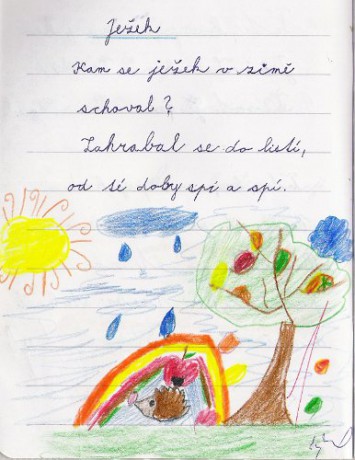 Ježek
Kam se ježek v zimě
schoval?
Zahrabal se do listí,
od té doby spí a spí.